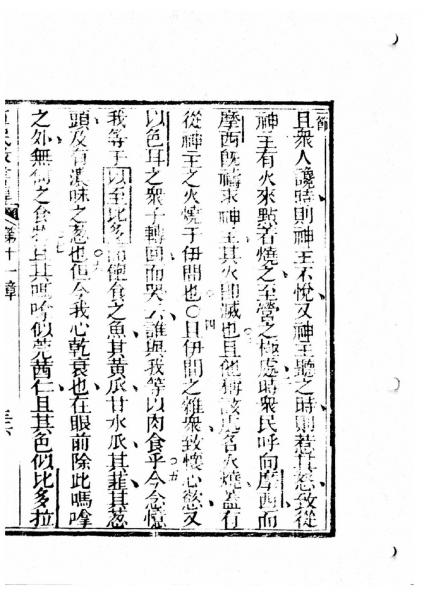 一節
且衆人讒時則神主不悅又神主聽之時則惹其怒致從
神主有火來點着燒之至營之極處時衆民呼向摩西而
摩西旣禱求神主其火卽滅也且他稱該處名火燒蓋有
從神主之火燒于伊間也○且伊間之雜衆致懷心慾又
四
以色耳之衆子轉回而哭云誰與我等以肉食乎今念憶
五
我等于以至比多而便食之魚其黃瓜甘水瓜其韮其葱
六
頭及有濃味之葱也但今我心乾衰也在眼前除此嗎𠹌
七
之外無別之食物且其嗎𠹌似芫茜仁且其色似比多拉
第十一章